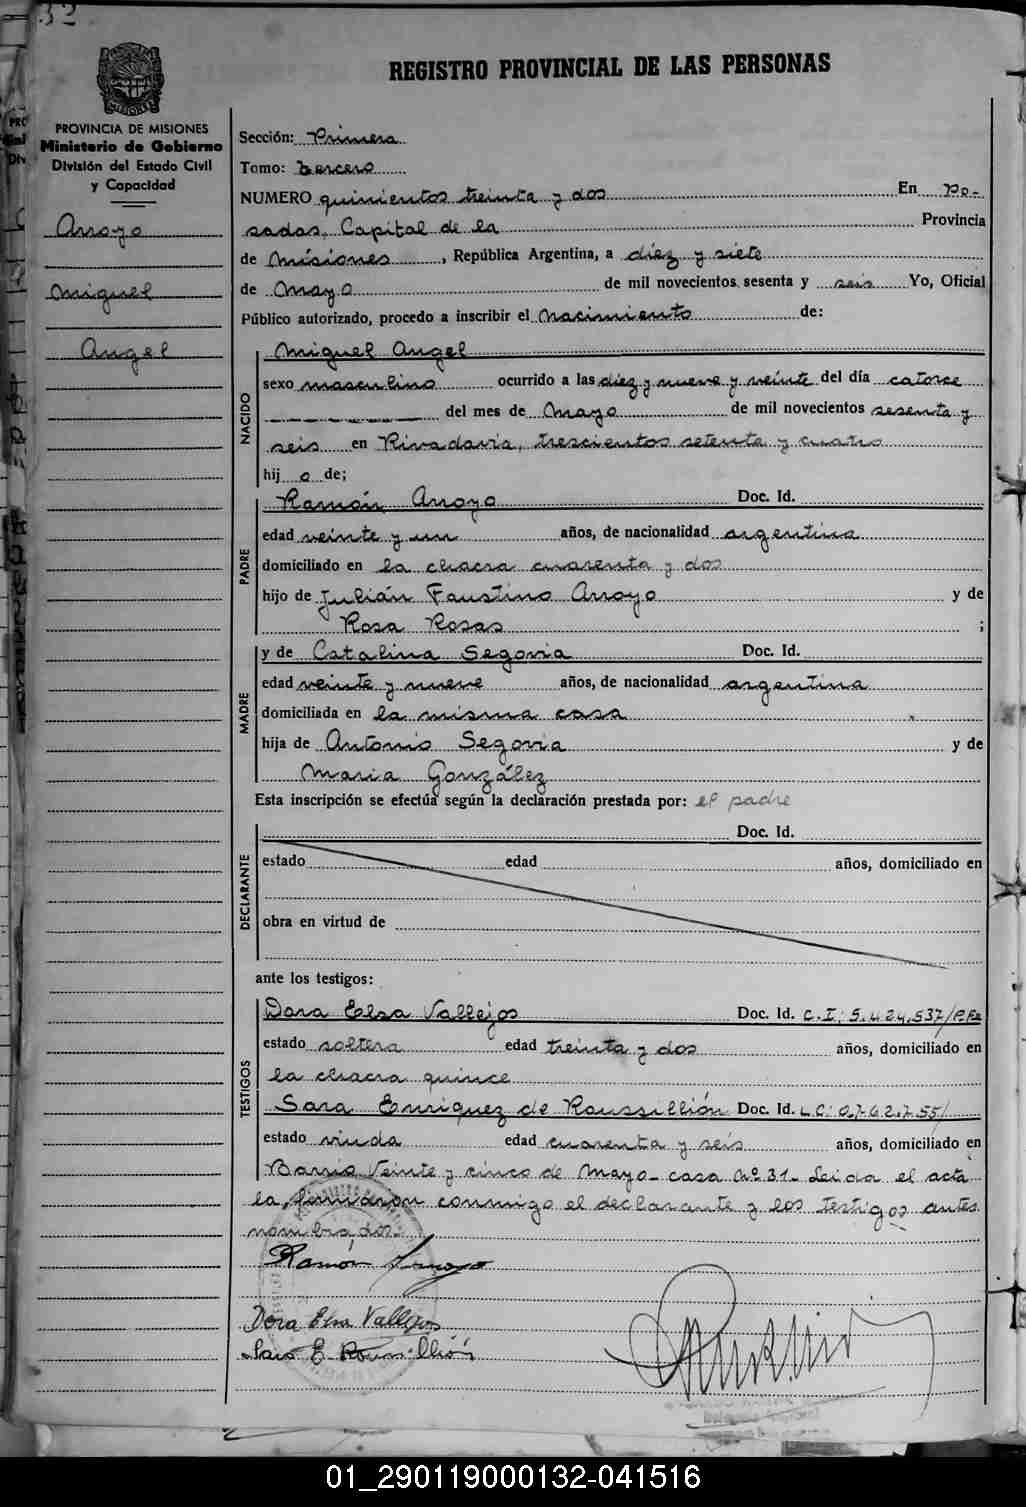 32
REGISTRO PROVINCIAL DE LAS PERSONAS
PROVINCIA DE MISIONES
Ministerio de Gobierno
División del Estado Civil
y Capacidad
Arroyo
Miguel
Angel
Sección: Primera
Tomo: tercero
NUMERO quinientos treinta y dos En Po-
sadas, Capital de la Provincia
de Misiones, República Argentina, a diez y siete
de Mayo de mil novecientos sesenta y seis Yo, Oficial
Público autorizado, procedo a inscribir el Nacimiento de:
NACIDO
Miguel Angel
sexo masculino ocurrido a las diez y nueve y veinte del día catorce
del mes de Mayo de mil novecientos sesenta y
seis en Rivadavia, trescientos setenta y cuatro
hij o de;
PADRE
Ramón Arroyo Doc. Id.
edad veinte y un años, de nacionalidad argentina
domiciliado en la chacra cuarenta y dos
hijo de Julián Faustino Arroyo y de
Rosa Rosas ;
MADRE
y de Catalina Segovia Doc. Id.
edad veinte y nueve años, de nacionalidad argentina
domiciliada en la misma casa
hija de Antonio Segovia y de
Maria González
Esta inscripción se efectúa según la declaración prestada por: el padre
DECLARANTE
Doc. Id.
estado edad años, domiciliado en
obra en virtud de
ante los testigos:
TESTIGOS
Dora Elsa Vallejos Doc. Id. C.I: 5.424.537/P.Fe
estado soltera edad treinta y dos años, domiciliado en
la chacra quince
Sara Enriquez de Roussillión Doc. Id. L.C: 0.762.755/
estado viuda edad cuarenta y seis años, domiciliado en
Barrio Veinte y cinco de Mayo - casa Nº 31 - Leida el acta
la firmaron conmigo el declarante y los testigos antes
nombrados.
Ramón Arroyo
Dora Elsa Vallejos
Sara E. Roussillión
01_290119000132-041516